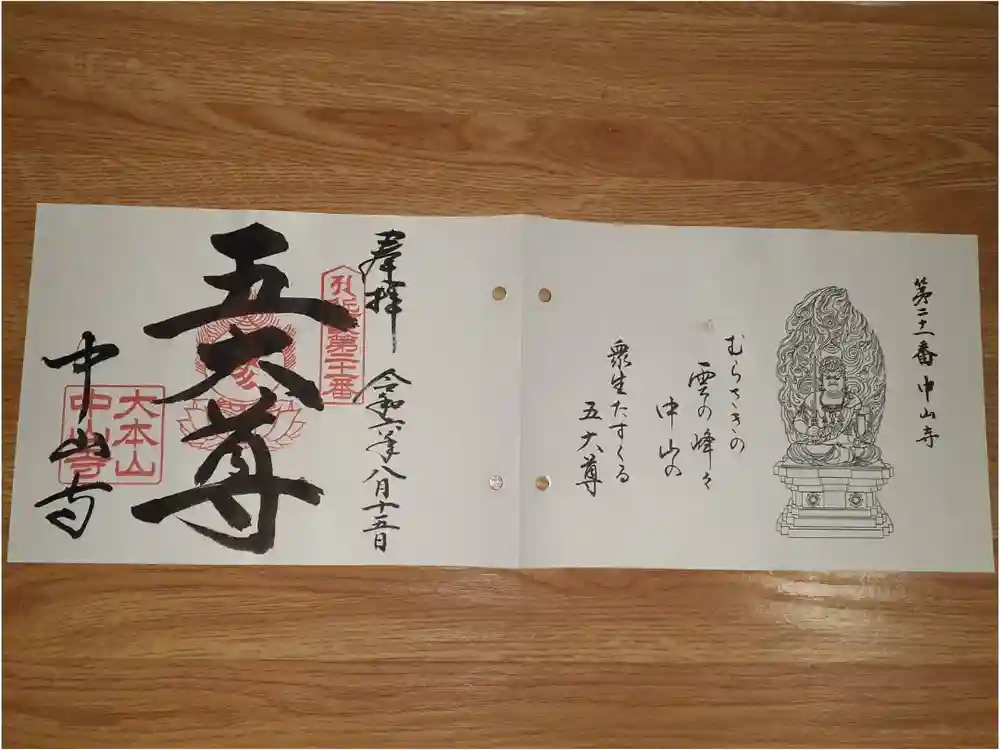 第二十一番 中山寺
むらさきの
雲の峰々
中山の
衆生たすくる
五大尊
奉拝 令和六年八月十五日
五大尊
中山寺
大本山
中山寺